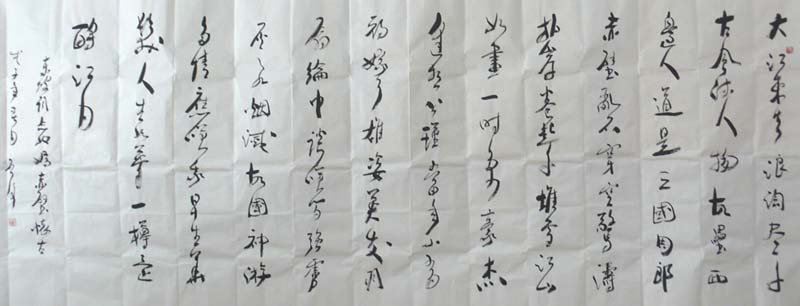 大江東去浪淘盡千
古風流人物故壘西
邊人道是三國周郎
赤壁亂石穿空驚濤
拍岸卷起千堆雪江山
如畫一時多少豪杰
遙想公瑾當年小喬
初嫁了雄姿英發羽
扇綸巾談笑間強虜
灰飛烟滅故國神游
多情應笑我早生華
髮人生如夢一樽還
酹江月
東坡詞念奴嬌赤壁懷古
戊子年